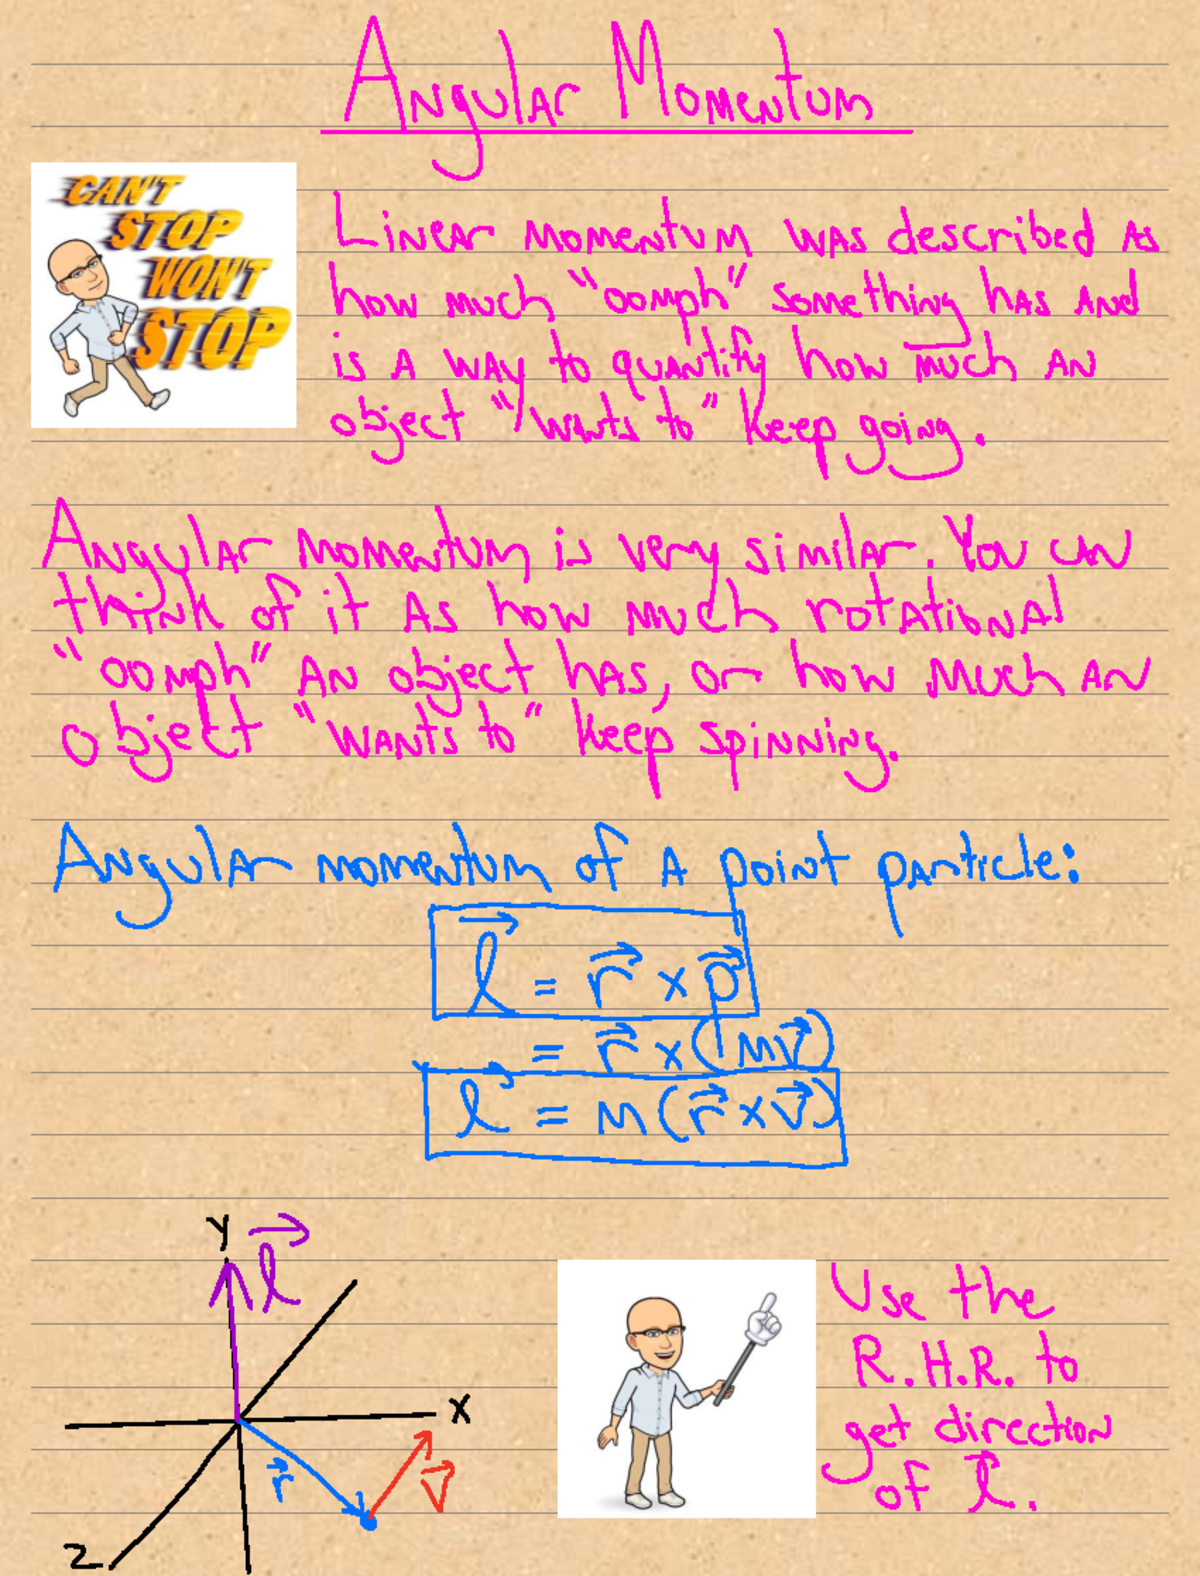 Angular Momentum
CAN'T
STOP
WON'T
STOP
Linear momentum was described as
how much "oomph" something has and
is a way to quantify how much an
object "wants to" keep going.
Angular momentum is very similar. You can
think of it as how much rotational
"oomph" an object has, or how much an
object "wants to" keep spinning.
Angular momentum of a point particle:
ℓ⃗ = r⃗ × p⃗
= r⃗ × (mv⃗)
ℓ⃗ = m(r⃗ × v⃗)
y ℓ⃗
x
r⃗ v⃗
z
Use the
R.H.R. to
get direction
of ℓ⃗.